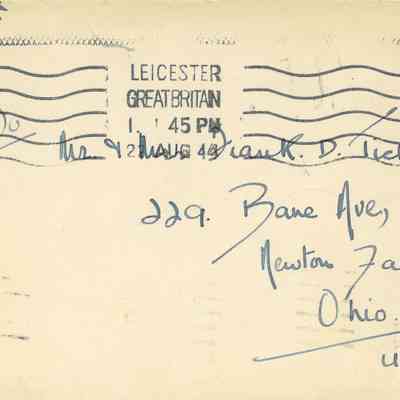 LEICESTER
GREAT BRITAIN
1 45 PM
27 AUG 44
Mr. & Mrs. Frank. D.
229. Bane Ave,
Newton Fa
Ohio.
U